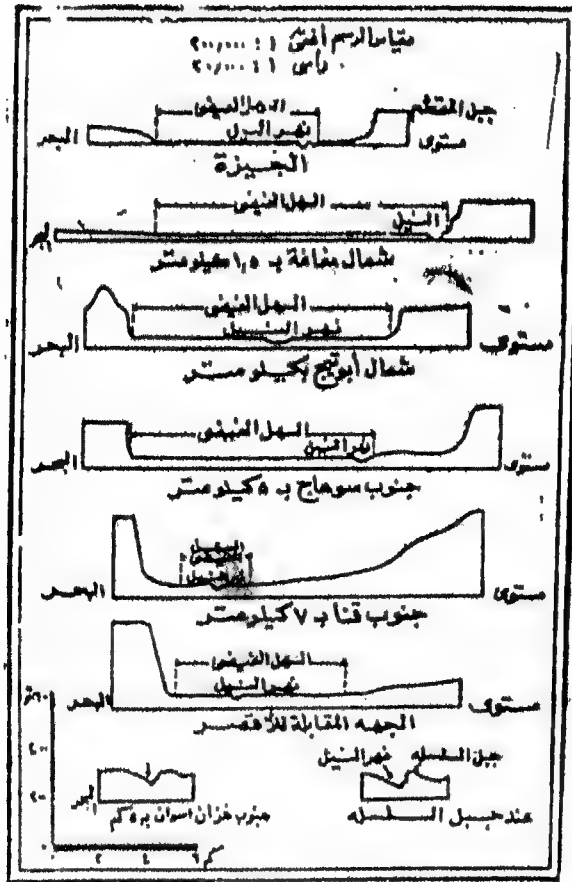 مقياس الرسم أفقى ١ : ٢٠٠,٠٠٠
رأسى ١ : ٢٠,٠٠٠
جبل المقطم
السهل الفيضى
نهر النيل
مستوى البحر
الجيزة
السهل الفيضى
النيل
البحر
شمال مغاغة بـ ١,٥ كيلومتر
السهل الفيضى
نهر النيل
مستوى البحر
شمال أبو تيج بكيلو متر
السهل الفيضى
نهر النيل
مستوى البحر
جنوب سوهاج بـ ٥ كيلو متر
السهل الفيضى
مستوى البحر
جنوب قنا بـ ٧ كيلو متر
السهل الفيضى
نهر النيل
مستوى البحر
الجهه المقابلة للأقصر
٤٠٠
٢٠٠
جبل السلسله
نهر النيل
عند جبل السلسله
جنوب خزان اسوان بـ ٥ كم
٠ ٢ ٤ ٦ كم